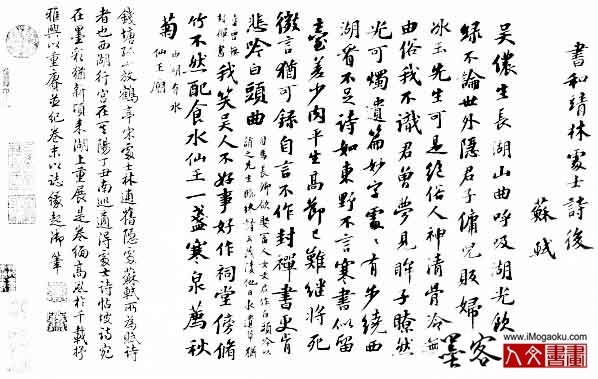 書和靖林處士詩後
蘇軾
吳儂生長湖山曲呼吸湖光飲
綠不論世外隱君子傭兒販婦
冰玉先生可是絕俗人神清骨冷無
由俗我不識君曾夢見眸子瞭然
光可燭遺篇妙字處〻有步繞西
湖看不足詩如東野不言寒書似留
臺差少肉平生高節已難繼將死
微言猶可錄自言不作封禪書更肯
悲吟白頭曲
我笑吳人不好事好作祠堂傍脩
竹不然配食水仙王一盞寒泉薦秋
菊
西湖有水
仙王廟
錢塘孤山放鶴亭宋處士林逋舊隱處蘇軾所為賦詩
者也西湖行宮在其陽丁丑南巡適得處士詩帖坡詩宛
在墨彩猶新頃來湖上重展是卷緬高風於千載抒
雅興以重賡並紀卷末以誌緣起御筆
墨客
www.iMogaoku.com
人文書畫